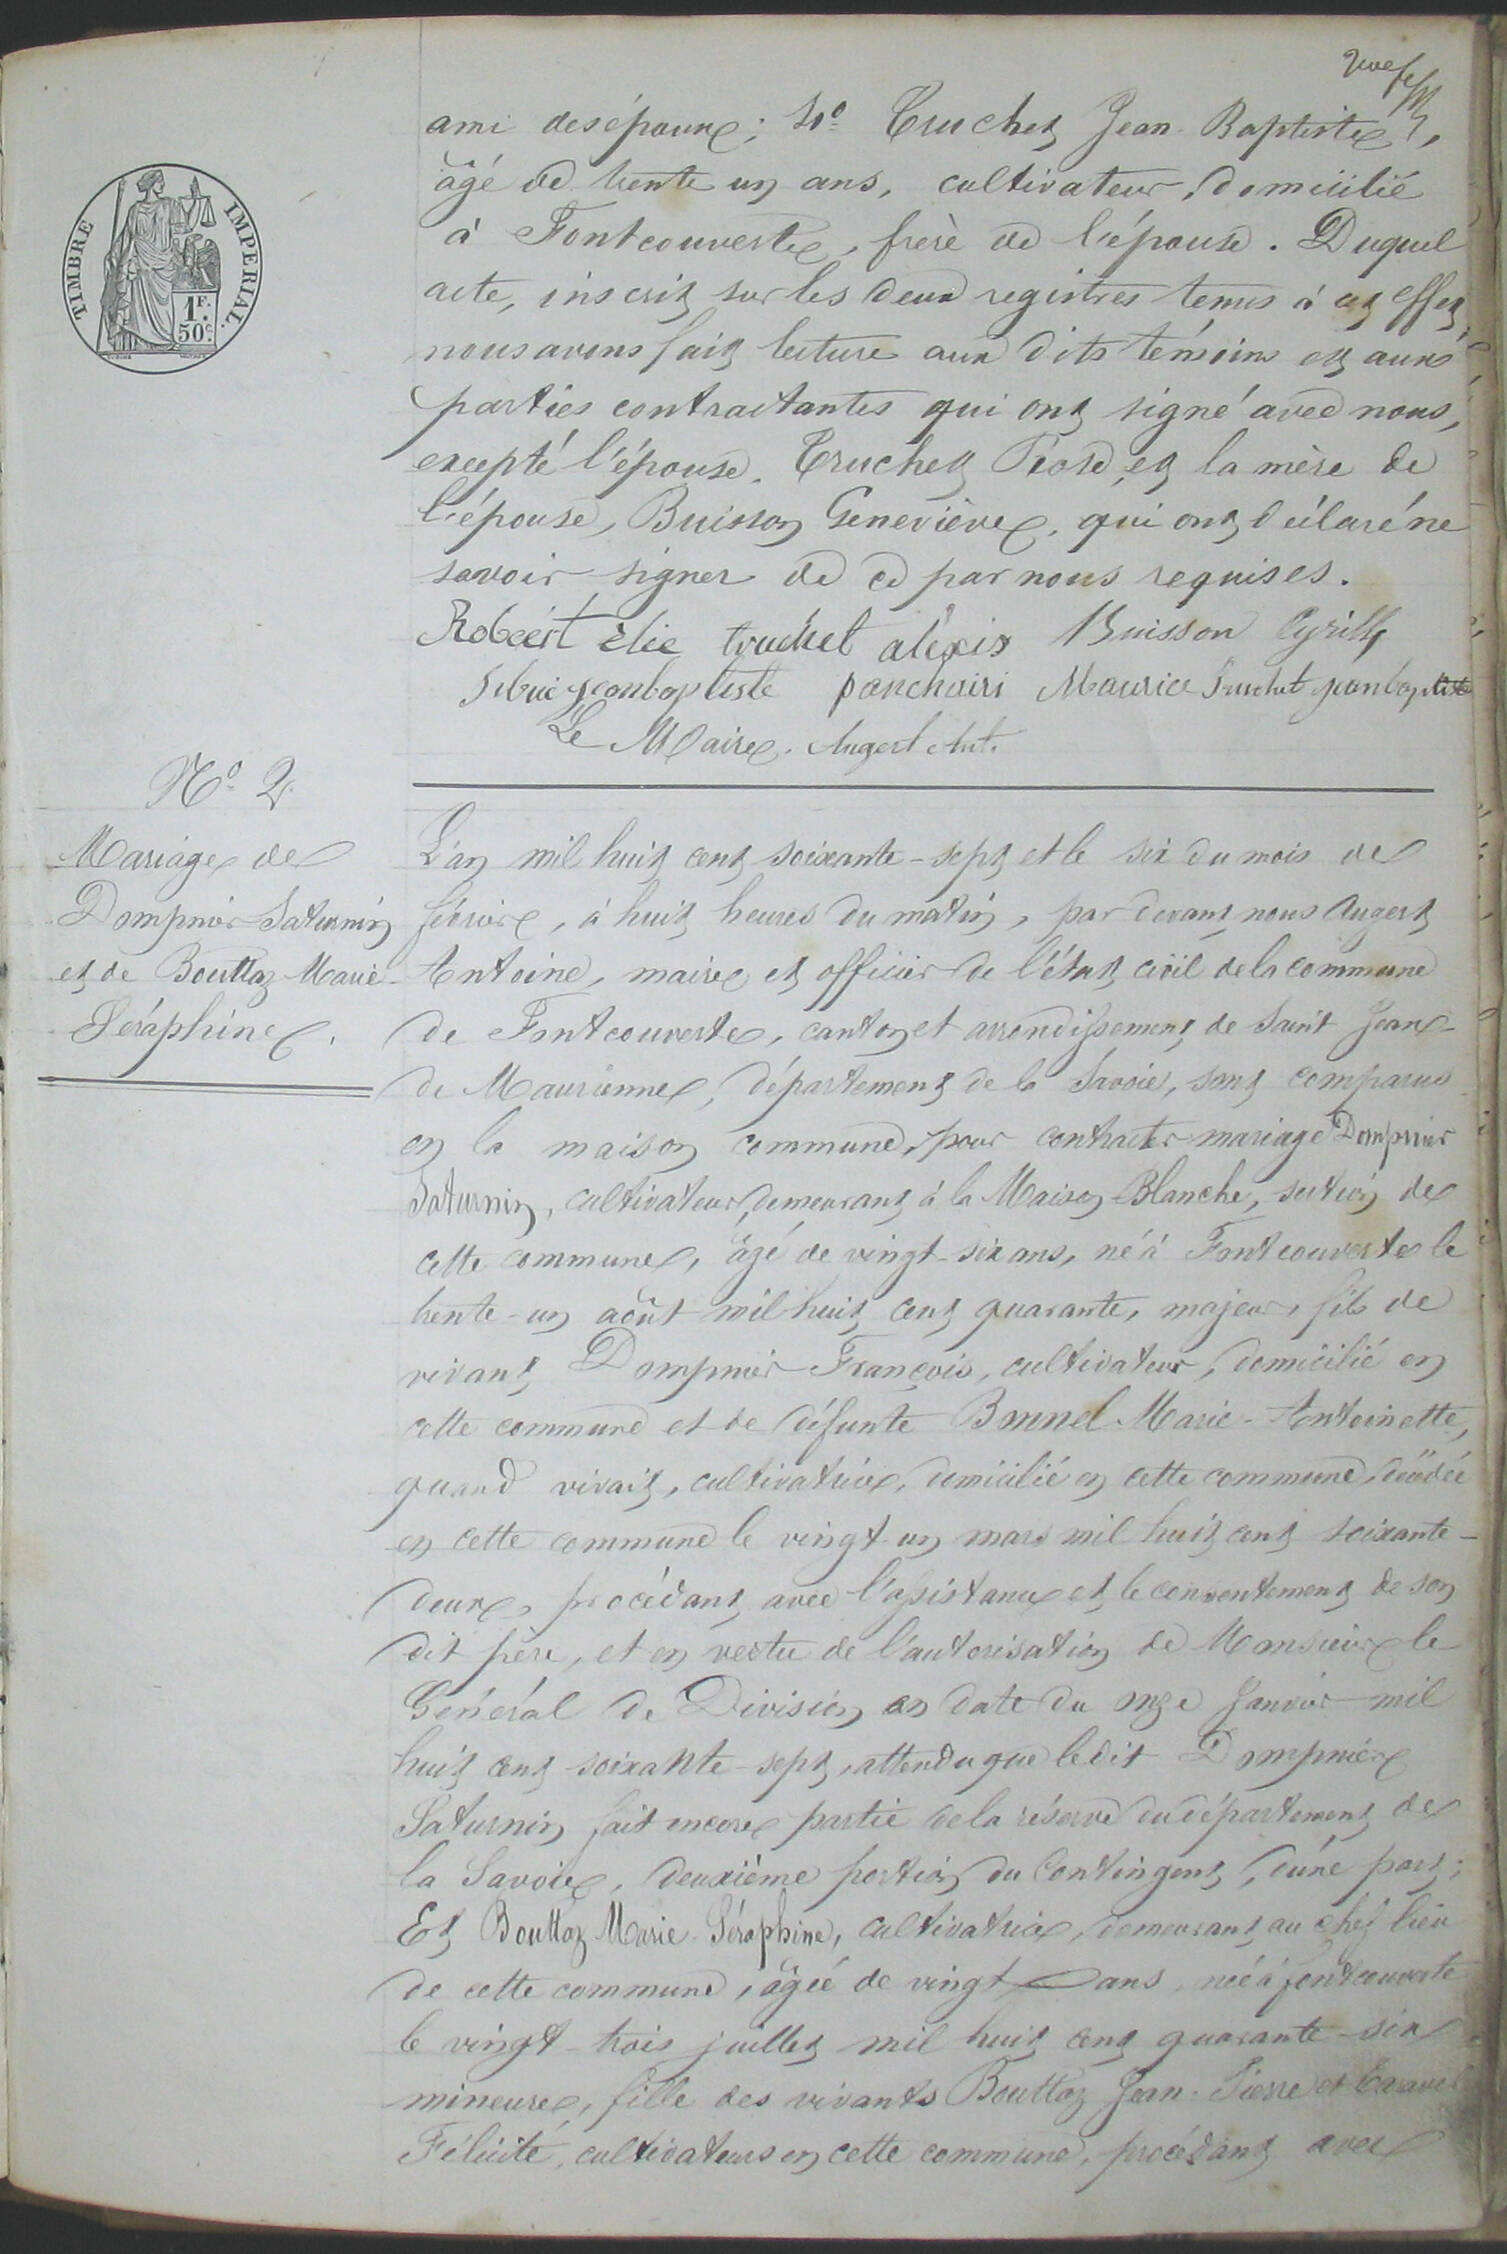 TIMBRE IMPERIAL
1F.
50c.
ami des époux; 4º Truchet Jean-Baptiste,
âgé de trente un ans, cultivateur, domicilié
à Fontcouverte, frère de l'épouse. Duquel
acte, inscrit sur les deux registres tenus à cet effet,
nous avons fait lecture aux dits témoins et aux
parties contractantes qui ont signé avec nous,
excepté l'épouse, Truchet Rose, et la mère de
l'épouse, Buisson Geneviève, qui ont déclaré ne
savoir signer de ce par nous requises.
Robért élie truchet alexis Buisson Cyrille
jeanbaptiste panchairi Maurice Truchet jeanbaptiste
Le Maire. Augert Ant.
Nº 2.
Mariage de
Dompnier Saturnin
et de Bouttaz Marie-
Séraphine.
L'an mil huit cent soixante-sept et le six du mois de
février, à huit heures du matin, par devant nous Augert
Antoine, maire et officier de l'état civil de la commune
de Fontcouverte, canton et arrondissement de Saint Jean-
de Maurienne, département de la Savoie, sont comparus
en la maison commune, pour contracter mariage Dompnier
Saturnin, cultivateur, demeurant à la Maison-Blanche, section de
cette commune, âgé de vingt-six ans, né à Fontcouverte le
trente-un août mil huit cent quarante, majeur, fils de
vivant Dompnier François, cultivateur, domicilié en
cette commune et de défunte Bonnel Marie-Antoinette,
quand vivait, cultivatrice, domicilié en cette commune, décédée
en cette commune le vingt-un mars mil huit cent soixante-
deux, procédant avec l'assistance et le consentement de son
dit père, et en vertu de l'autorisation de Monsieur le
Général de Division en date du onze janvier mil
huit cent soixante-sept, attendu que le dit Dompnier
Saturnin fait encore partie de la réserve du département de
la Savoie, deuxième portion du Contingent, d'une part;
Et Bouttaz Marie-Séraphine, cultivatrice, demeurant au chef lieu
de cette commune, âgée de vingt ans, née à fontcouverte
le vingt-trois juillet mil huit cent quarante-six
mineure, fille des vivants Bouttaz Jean-Pierre et
Félicité, cultivateurs en cette commune, procédant avec